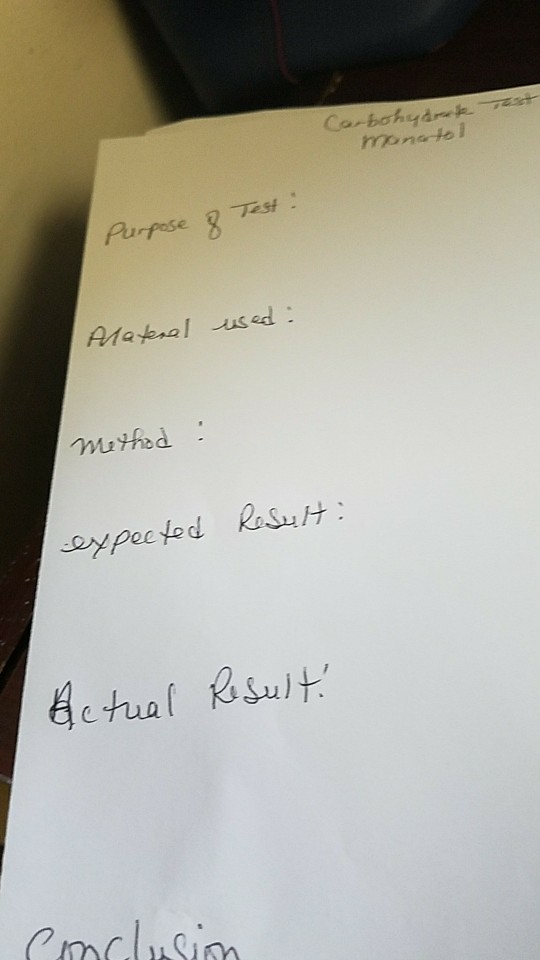 Carbohydrate Test
Manatol
Purpose of Test:
Material used:
Method:
expected Result:
Actual Result:
Conclusion